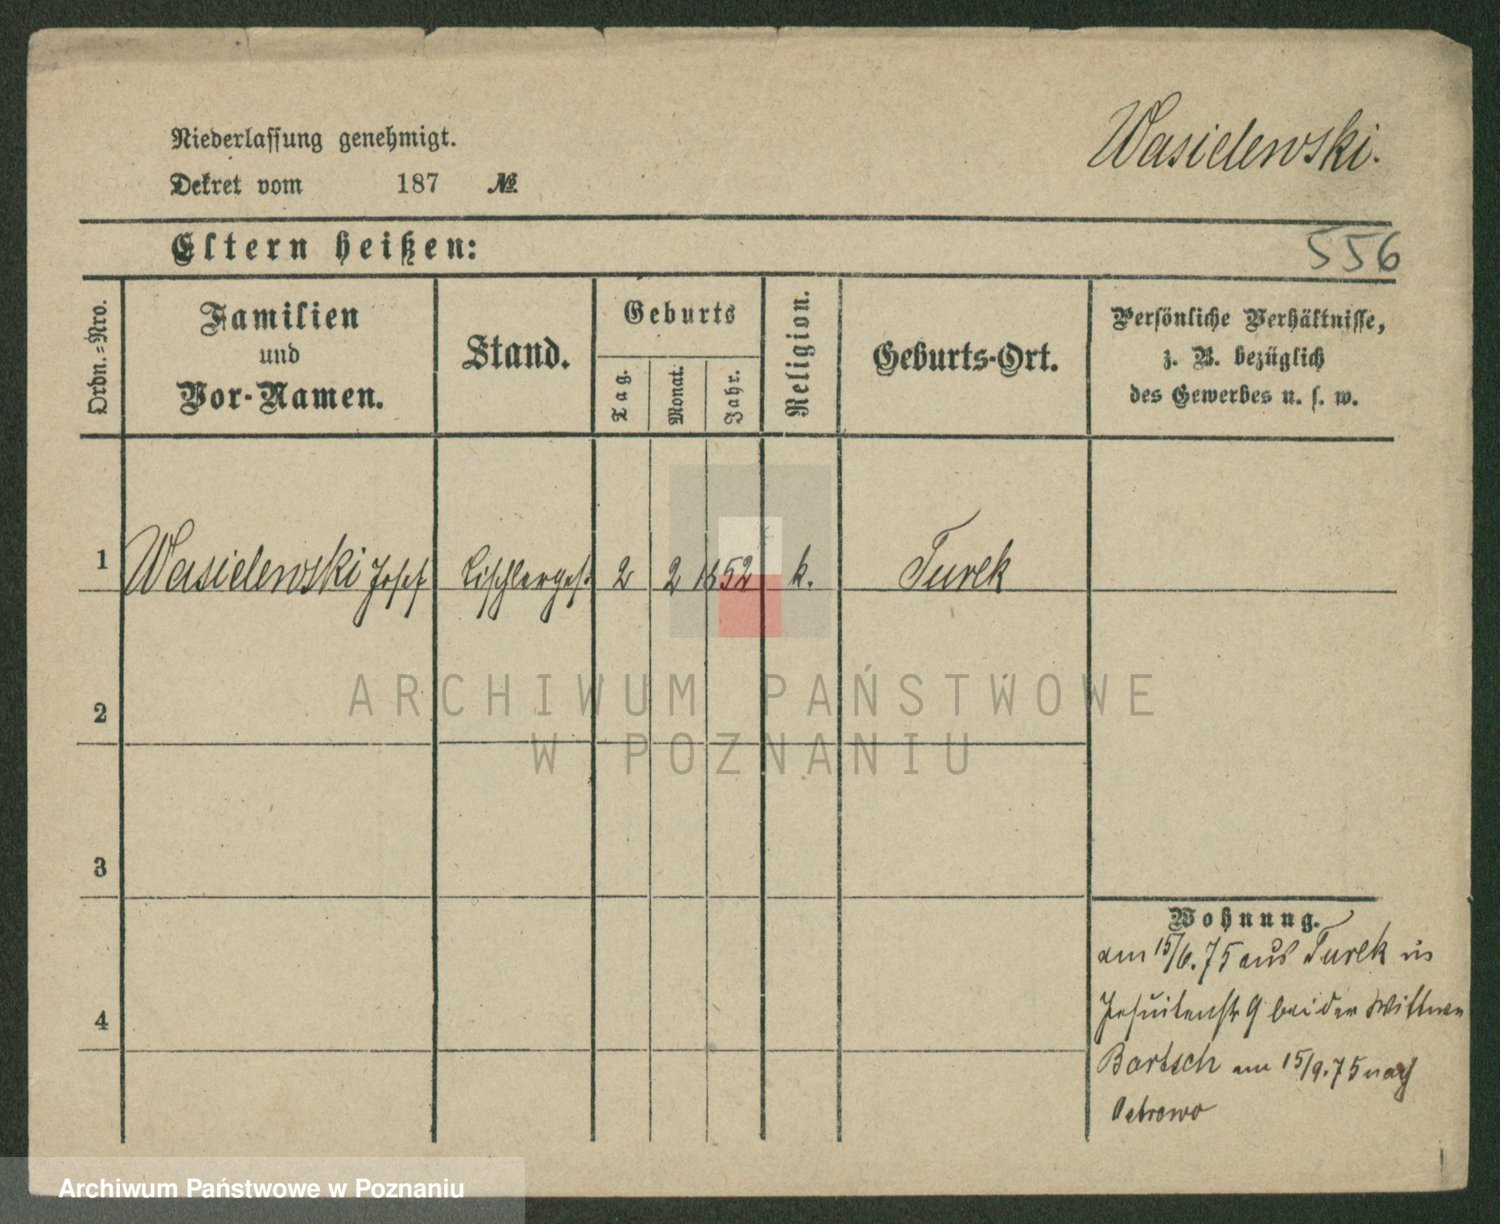 Wasielewski.
Niederlassung genehmigt.
Dekret vom 187 №
Eltern heißen:
556
Ordn.=Nro.
Familien
und
Vor-Namen.
Stand.
Geburts
Tag.
Monat.
Jahr.
Religion.
Geburts-Ort.
Persönliche Verhältnisse,
z. B. bezüglich
des Gewerbes u. s. w.
1 Wasielewski Josef Tischlerges 2 2 1852 k. Turek
ARCHIWUM PAŃSTWOWE
W POZNANIU
2
3
4
Wohnung.
am 15/6.75 aus Turek in
Jesuitenstr 9 bei der Wittwe
Bartsch am 15/9.75 nach
Ostrowo
Archiwum Państwowe w Poznaniu